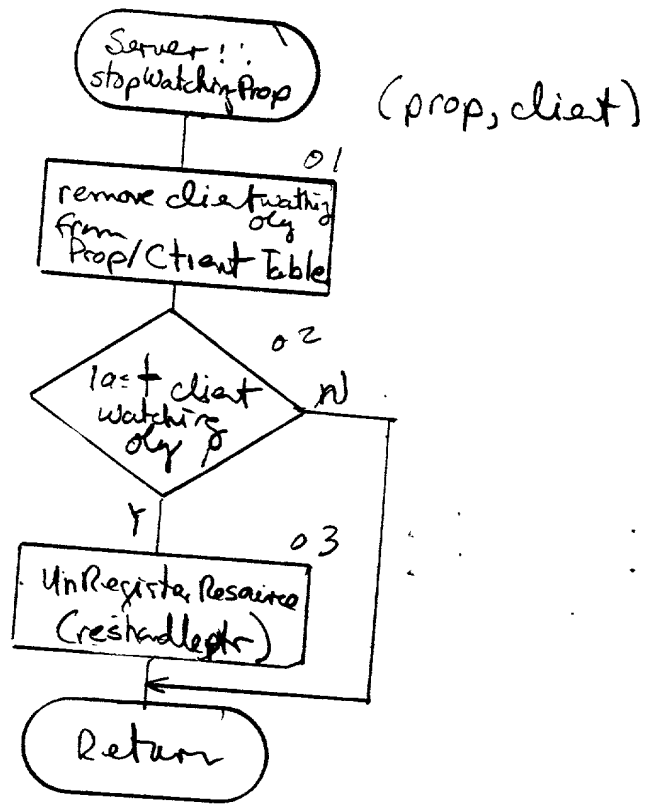 Server::
stopWatchingProp
(prop, client)
01
remove client wathing
obj
from
Prop/Client Table
02
last client
watching
obj p
N
Y
03
UnRegister Resource
(reshandleptr)
Return